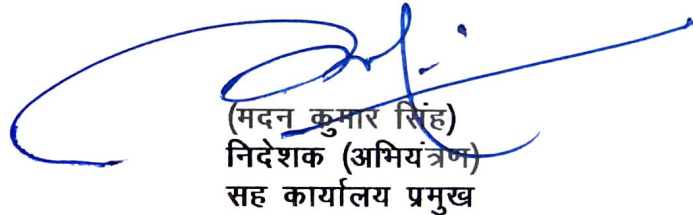 (मदन कुमार सिंह)
निदेशक (अभियंत्रण)
सह कार्यालय प्रमुख